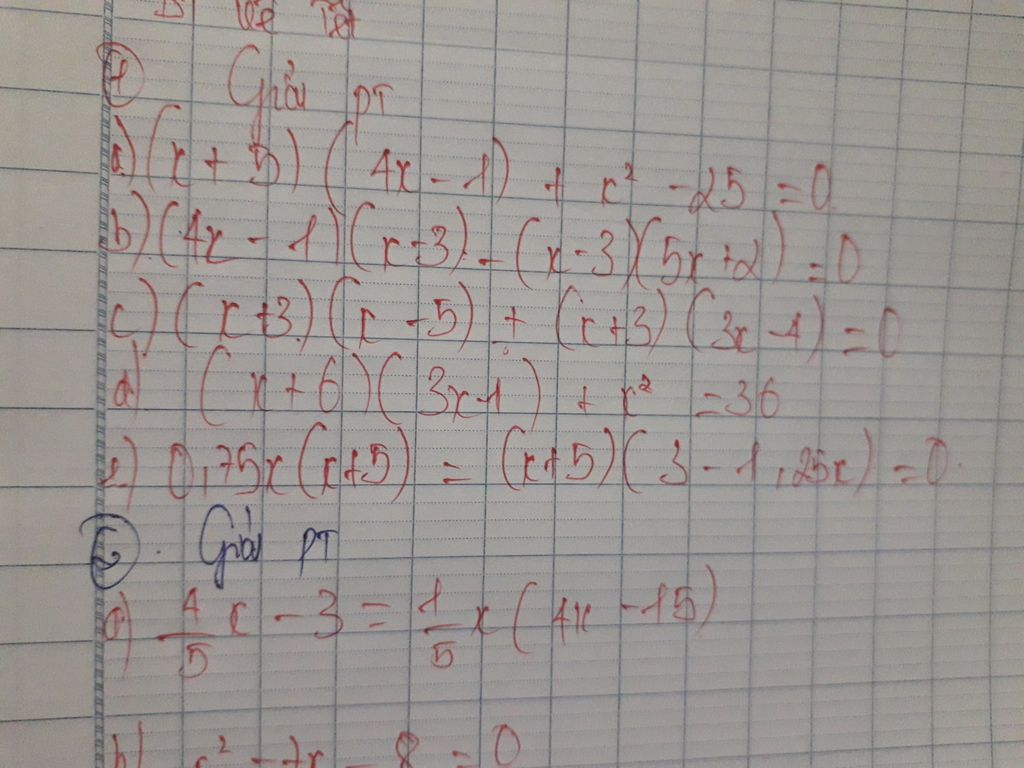 ① Giải pt
a) (x + 5) (4x - 1) + x² - 25 = 0
b) (4x - 1) (x - 3) - (x - 3) (5x + 2) = 0
c) (x + 3) (x - 5) + (x + 3) (3x - 4) = 0
d) (x + 6) (3x - 1) + x² = 36
e) 0,75x (x + 5) = (x + 5) (3 - 1,25x) = 0.
② Giải PT
a) 4/5 x - 3 = 1/5 x (4x - 15)
b) x² - 7x - 8 = 0